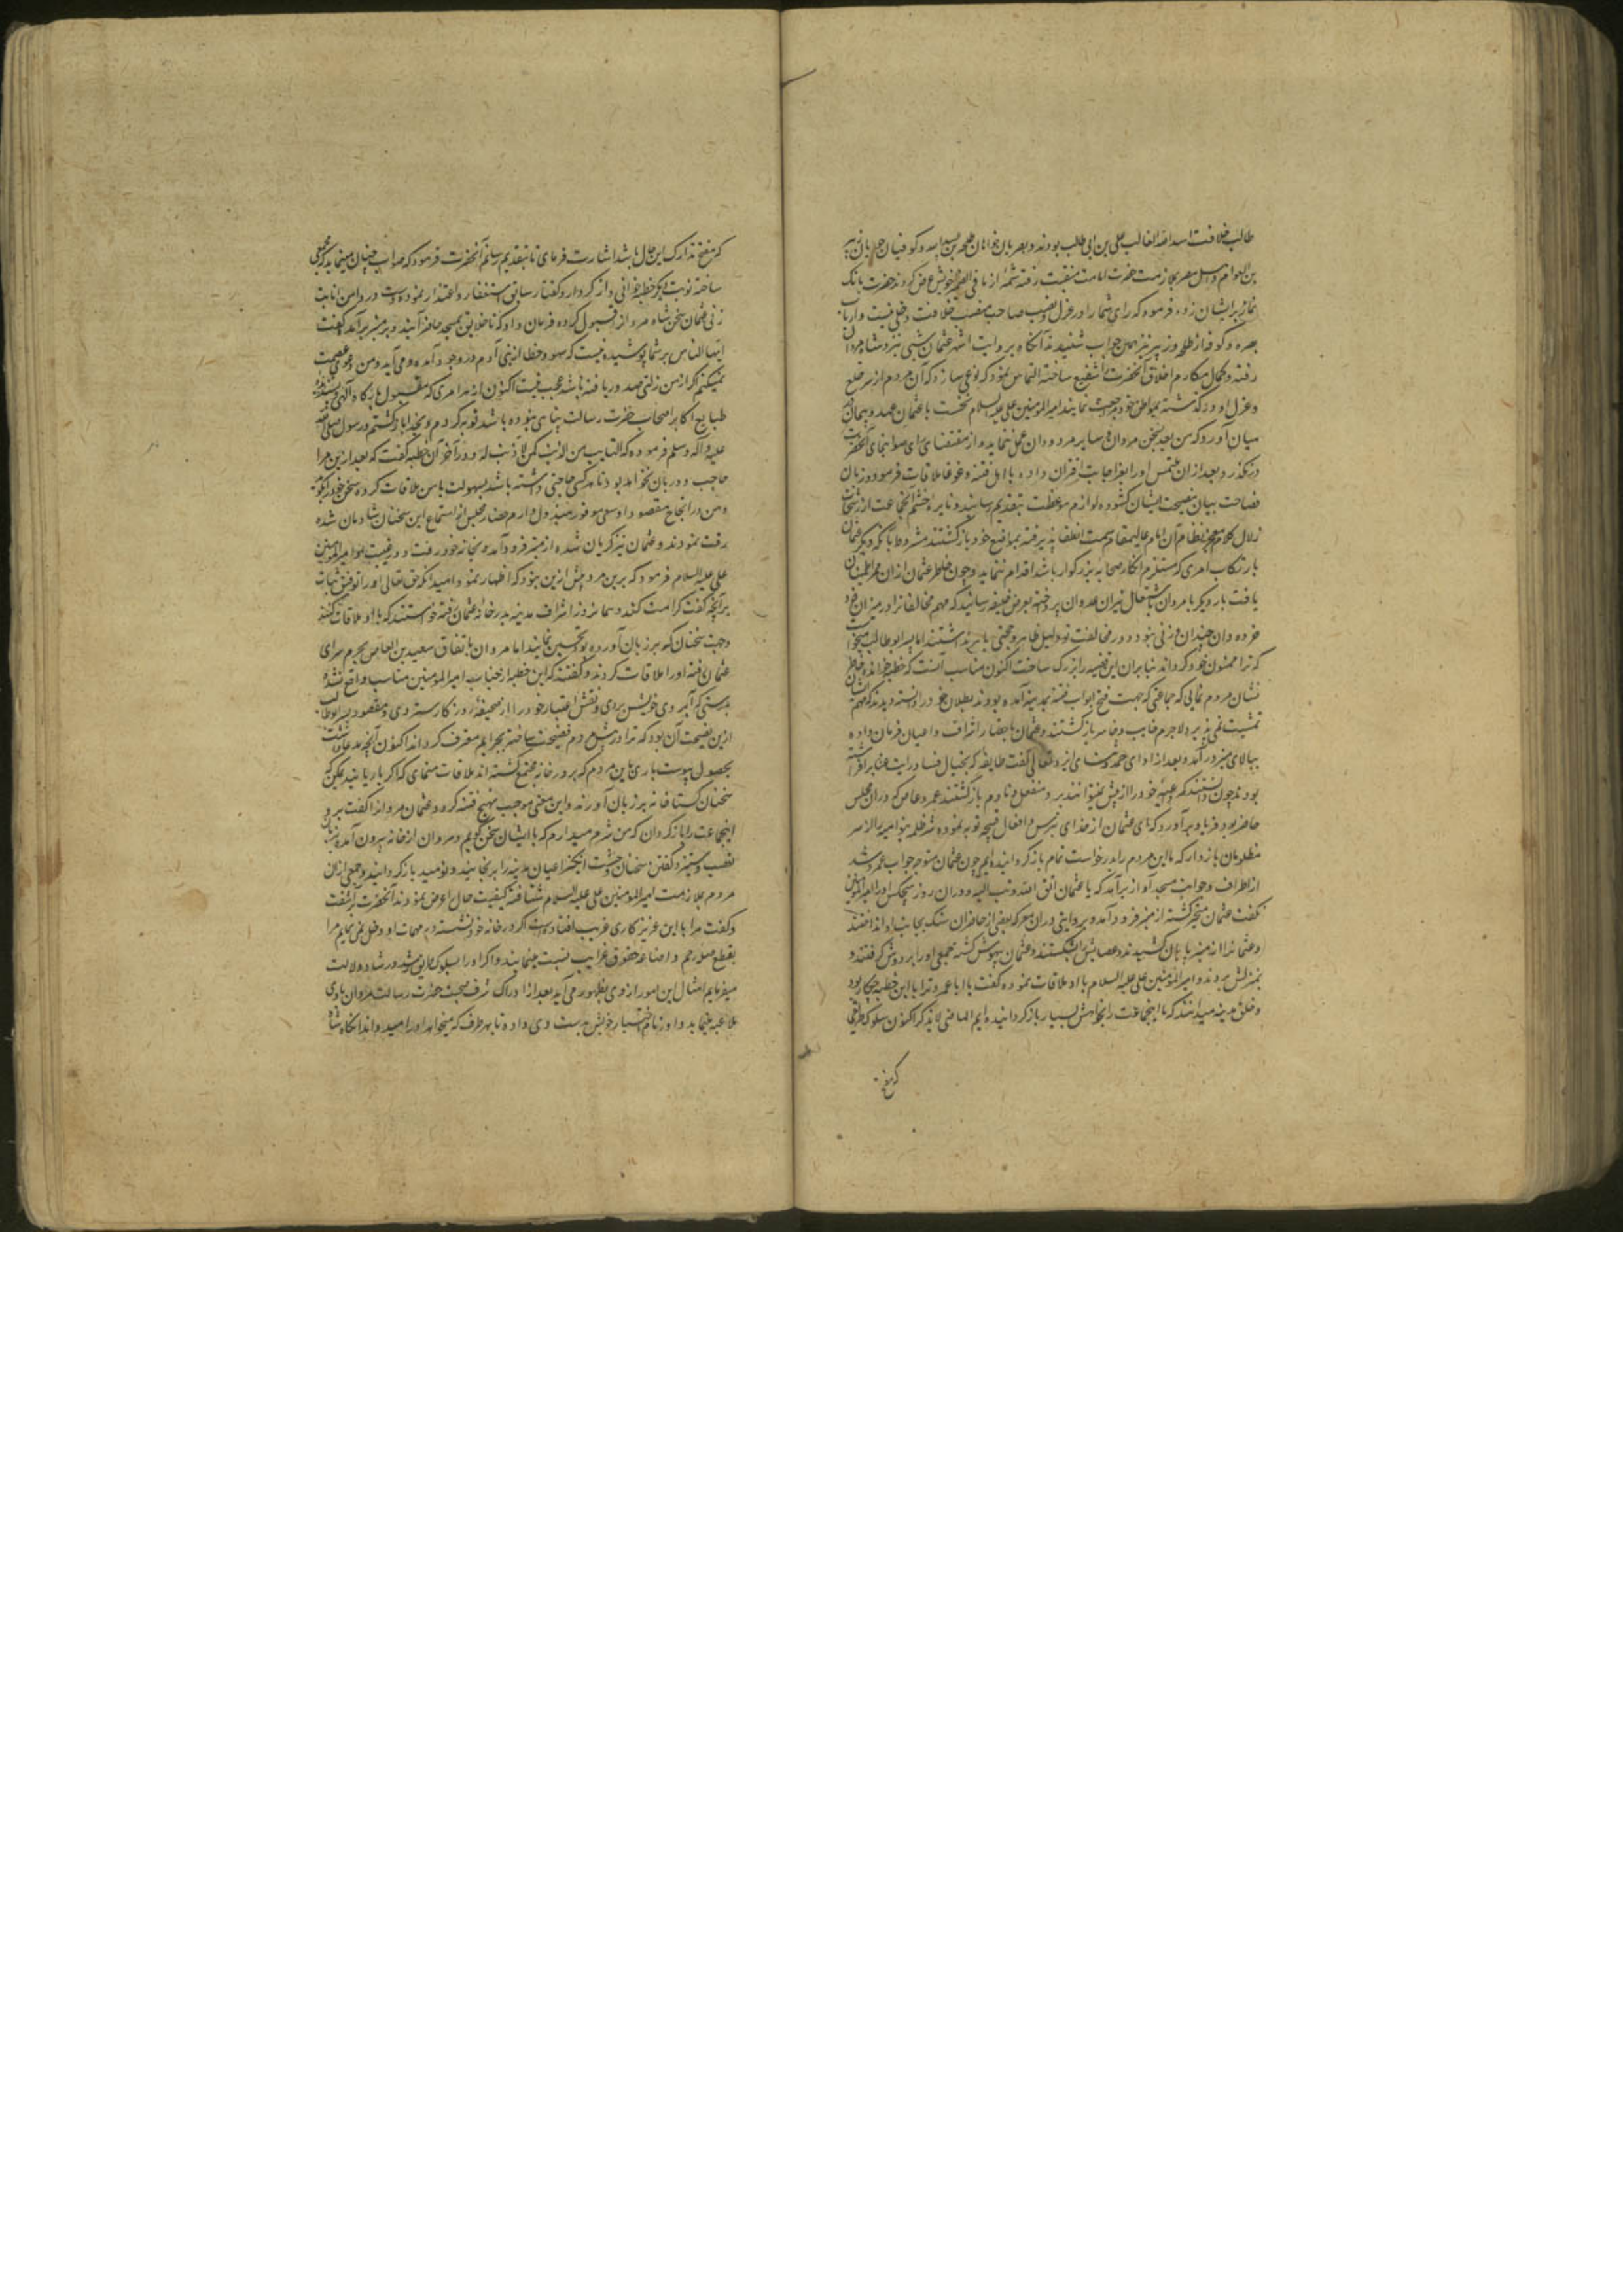 طالب خلافت اسد الله الغالب علی بن ابی طالب بودند و بصریان خواهان طلحه بن عبید الله و کوفیان جویان زبیر
بن العوام و اهل مصر بملازمت حضرت امامت منقبت رفته شمه از ما فی الضمیر خویش عرض کردند حضرت بانک
نماز بر ایشان زده فرمود که رای شما را در عزل و نصب صاحب منصب خلافت دخلی نیست و ارباب
بصره و کوفه از طلحه و زبیر نیز همین جواب شنیدند آنکاه بروایت اشهر عثمان شبی نزد شاه مردان
رفته و بکمال مکارم اخلاق آنحضرت را شفیع ساخته التماس نمود که نوعی سازد که آن مردم از سر خلع
و عزل او درکذشته بمواطن خود مراجعت نمایند امیر المومنین علی علیه السلام نخست با عثمان عهد و پیمان در
میان آورد که من بعد بسخن مروان و سایر مردودان عمل ننماید و از مقتضای رای صوابنمای آنحضرت
درنکذرد و بعد از ان ملتمس او را بعز اجابت اقتران داده با اهل فتنه و غوغا ملاقات فرمود و زبان
فصاحت بیان بنصیحت ایشان کشوده لوازم موعظت بتقدیم رسانید و نایره خشم آنجماعت از رشحات
زلال کلام معجز نظام آن امام عالیمقام سمت انطفا پذیرفته بمواضع خود بازکشتند مشروط بآنکه دیکر عثمان
بارتکاب امری که مستلزم انکار صحابه بزرکوار باشد اقدام ننماید و چون خاطر عثمان از ان ممر اطمینان
یافت بار دیکر با مروان باشتعال نیران عدوان پرداخته بعرض خلیفه رسانید که مهم مخالفانرا در میزان خرد
خرده دان چندان وزنی نبود و در مخالفت تو دلیل ظاهر و حجتی باهر نداشتند اما پسر ابو طالب میخواست
که ترا ممنون خود کرداند بنابران این قضیه را بزرک ساخت اکنون مناسب آنست که خطبه خوانده خاطر
نشان مردم نمائی که جماعتی که جهت فتح ابواب فتنه بمدینه آمده بودند بطلان خود را دانسته دیدند که مهم ایشان
تمشیت نمی پذیرد لاجرم خایب و خاسر بازکشتند و عثمان باحضار اشراف و اعیان فرمان داده
ببالای منبر درآمد و بعد از ادای حمد و ثنای ایزد تعالی گفت طایفه که بخیال فساد رایت عناد برافراشته
بودند چون دانستند که عهد خود را از پیش نمیتوانند برد منفعل و نادم بازکشتند عمرو عاص که دران مجلس
حاضر بود فریاد برآورد که ای عثمان از خدای بترس و افعال قبیحه توبه نموده شر ظلمه بنو امیه را از سر
مظلومان بازدار که ما این مردم را بدرخواست تمام بازکردانیده ایم چون عثمان متوجه جواب عمرو شد
از اطراف و جوانب مسجد آواز برآمد که یا عثمان اتق الله و تب الیه و دران روز هیچکس او را امیر المومنین
نکفت عثمان متحیر کشته از منبر فرود آمد و بروایتی دران معرکه بعضی از حاضران سنک بجانب او انداختند
و عثمانرا از منبر بپایان کشیدند و عصایش را شکستند و عثمان بیهوش کشته جمعی او را بر دوش کرفتند و
بمنزلش بردند و امیر المومنین علی علیه السلام با او ملاقات نموده کفت یا ابا عمرو ترا با این خطبه چکار بود
و خلق مدینه میدانند که ما اینجماعت را بخواهش بسیار بازکردانیده ایم الماضی لا یذکر اکنون سلوک طریقی
که متضمن
که متضمن تدارک این حال باشد اشارت فرمای تا بتقدیم رسانم آنحضرت فرمود که صواب چنان مینماید که مجمعی
ساخته نوبت دیکر خطبه خوانی و از کردار و کفتار سابق استغفار و اعتذار نموده دست در دامن انابت
زنی عثمان سخن شاه مردان قبول کرده فرمان داد که تا خلایق بمسجد حاضر آیند و بر منبر برآمد گفت
ایها الناس بر شما پوشیده نیست که سهو و خطا از بنی آدم در وجود آمده و می آید و من دعوی عصمت
نمیکنم اکر از من زلتی صدور یافته باشد عجب نیست اکنون از هر امری که مقبول بارکاه الهی و پسندیده
طبایع اکابر اصحاب حضرت رسالت پناهی نبوده باشد توبه کردم و بخدا بازکشتم و رسول صلی الله
علیه و آله و سلم فرموده که التایب من الذنب کمن لا ذنب له و در آخر آن خطبه کفت که بعد ازین مرا
حاجب و دربان نخواهد بود تا هر کسی حاجتی داشته باشد بسهولت با من ملاقات کرده سخن خود را بکوید
و من در انجاح مقصود او سعی موفور مبذول دارم حضار مجلس از استماع این سخنان شادمان شده
رقت نمودند و عثمان نیز کریان شده از منبر فرود آمد و بخانه خود رفت و در غیبت او امیر المومنین
علی علیه السلام فرمود که برین مرد بیش ازین نبود که اظهار نمود و امید آنکه حق تعالی او را توفیق ثبات
بر آنچه کفت کرامت کند و همانروز اشراف مدینه بدر خانه عثمان رفته خواستند که با او ملاقات کنند
و جهت سخنان که بر زبان آورده بود تحسین نمایند اما مروان باتفاق سعید بن العاص بحرم سرای
عثمان رفته او را ملاقات کردند و گفتند که این خطبه از جناب امیر المومنین مناسب واقع نشد
بدرستی که آبروی خویش بردی و نقش اعتبار خود را از صحیفه روزکار ستردی و مقصود پسر ابو طالب
ازین نصیحت آن بود که ترا در پیش مردم فضیحت ساخته بجرایم معترف کرداند اکنون آنچه مدعا داشت
بحصول پیوست باری با این مردم که بر در خانه مجتمع کشته اند ملاقات منمای که اکر بار یابند ممکن که
سخنان کستاخانه بر زبان آورند و این معنی موجب تهییج فتنه کردد و عثمان مروانرا کفت برو
اینجماعت را بازکردان که من شرم میدارم که با ایشان سخن کویم و مروان از خانه بیرون آمده بزبان
تعصب و ستیزه و کفتن سخنان وحشت انکیز اعیان مدینه را برنجانید و نومید بازکردانید و جمعی از ان
مردم بملازمت امیر المومنین علی علیه السلام شتافته کیفیت حال را عرض نمودند آنحضرت برآشفت
و کفت مرا با این عزیز کاری غریب افتاده است اکر در خانه خود نشسته در مهمات او دخل نمی نمایم مرا
بقطع صله رحم و اضاعه حقوق قرابت نسبت مینماید و اکر او را بسلوک طریق رشد و رشاد دلالت
میفرمایم امثال این امور از وی بظهور می آید بعد از ادراک شرف صحبت حضرت رسالت مروان با وی
ملاعبه مینماید و او زمام اختیار خویش بدست وی داده تا بهر طرف که میخواهد او را میدواند آنکاه شاه